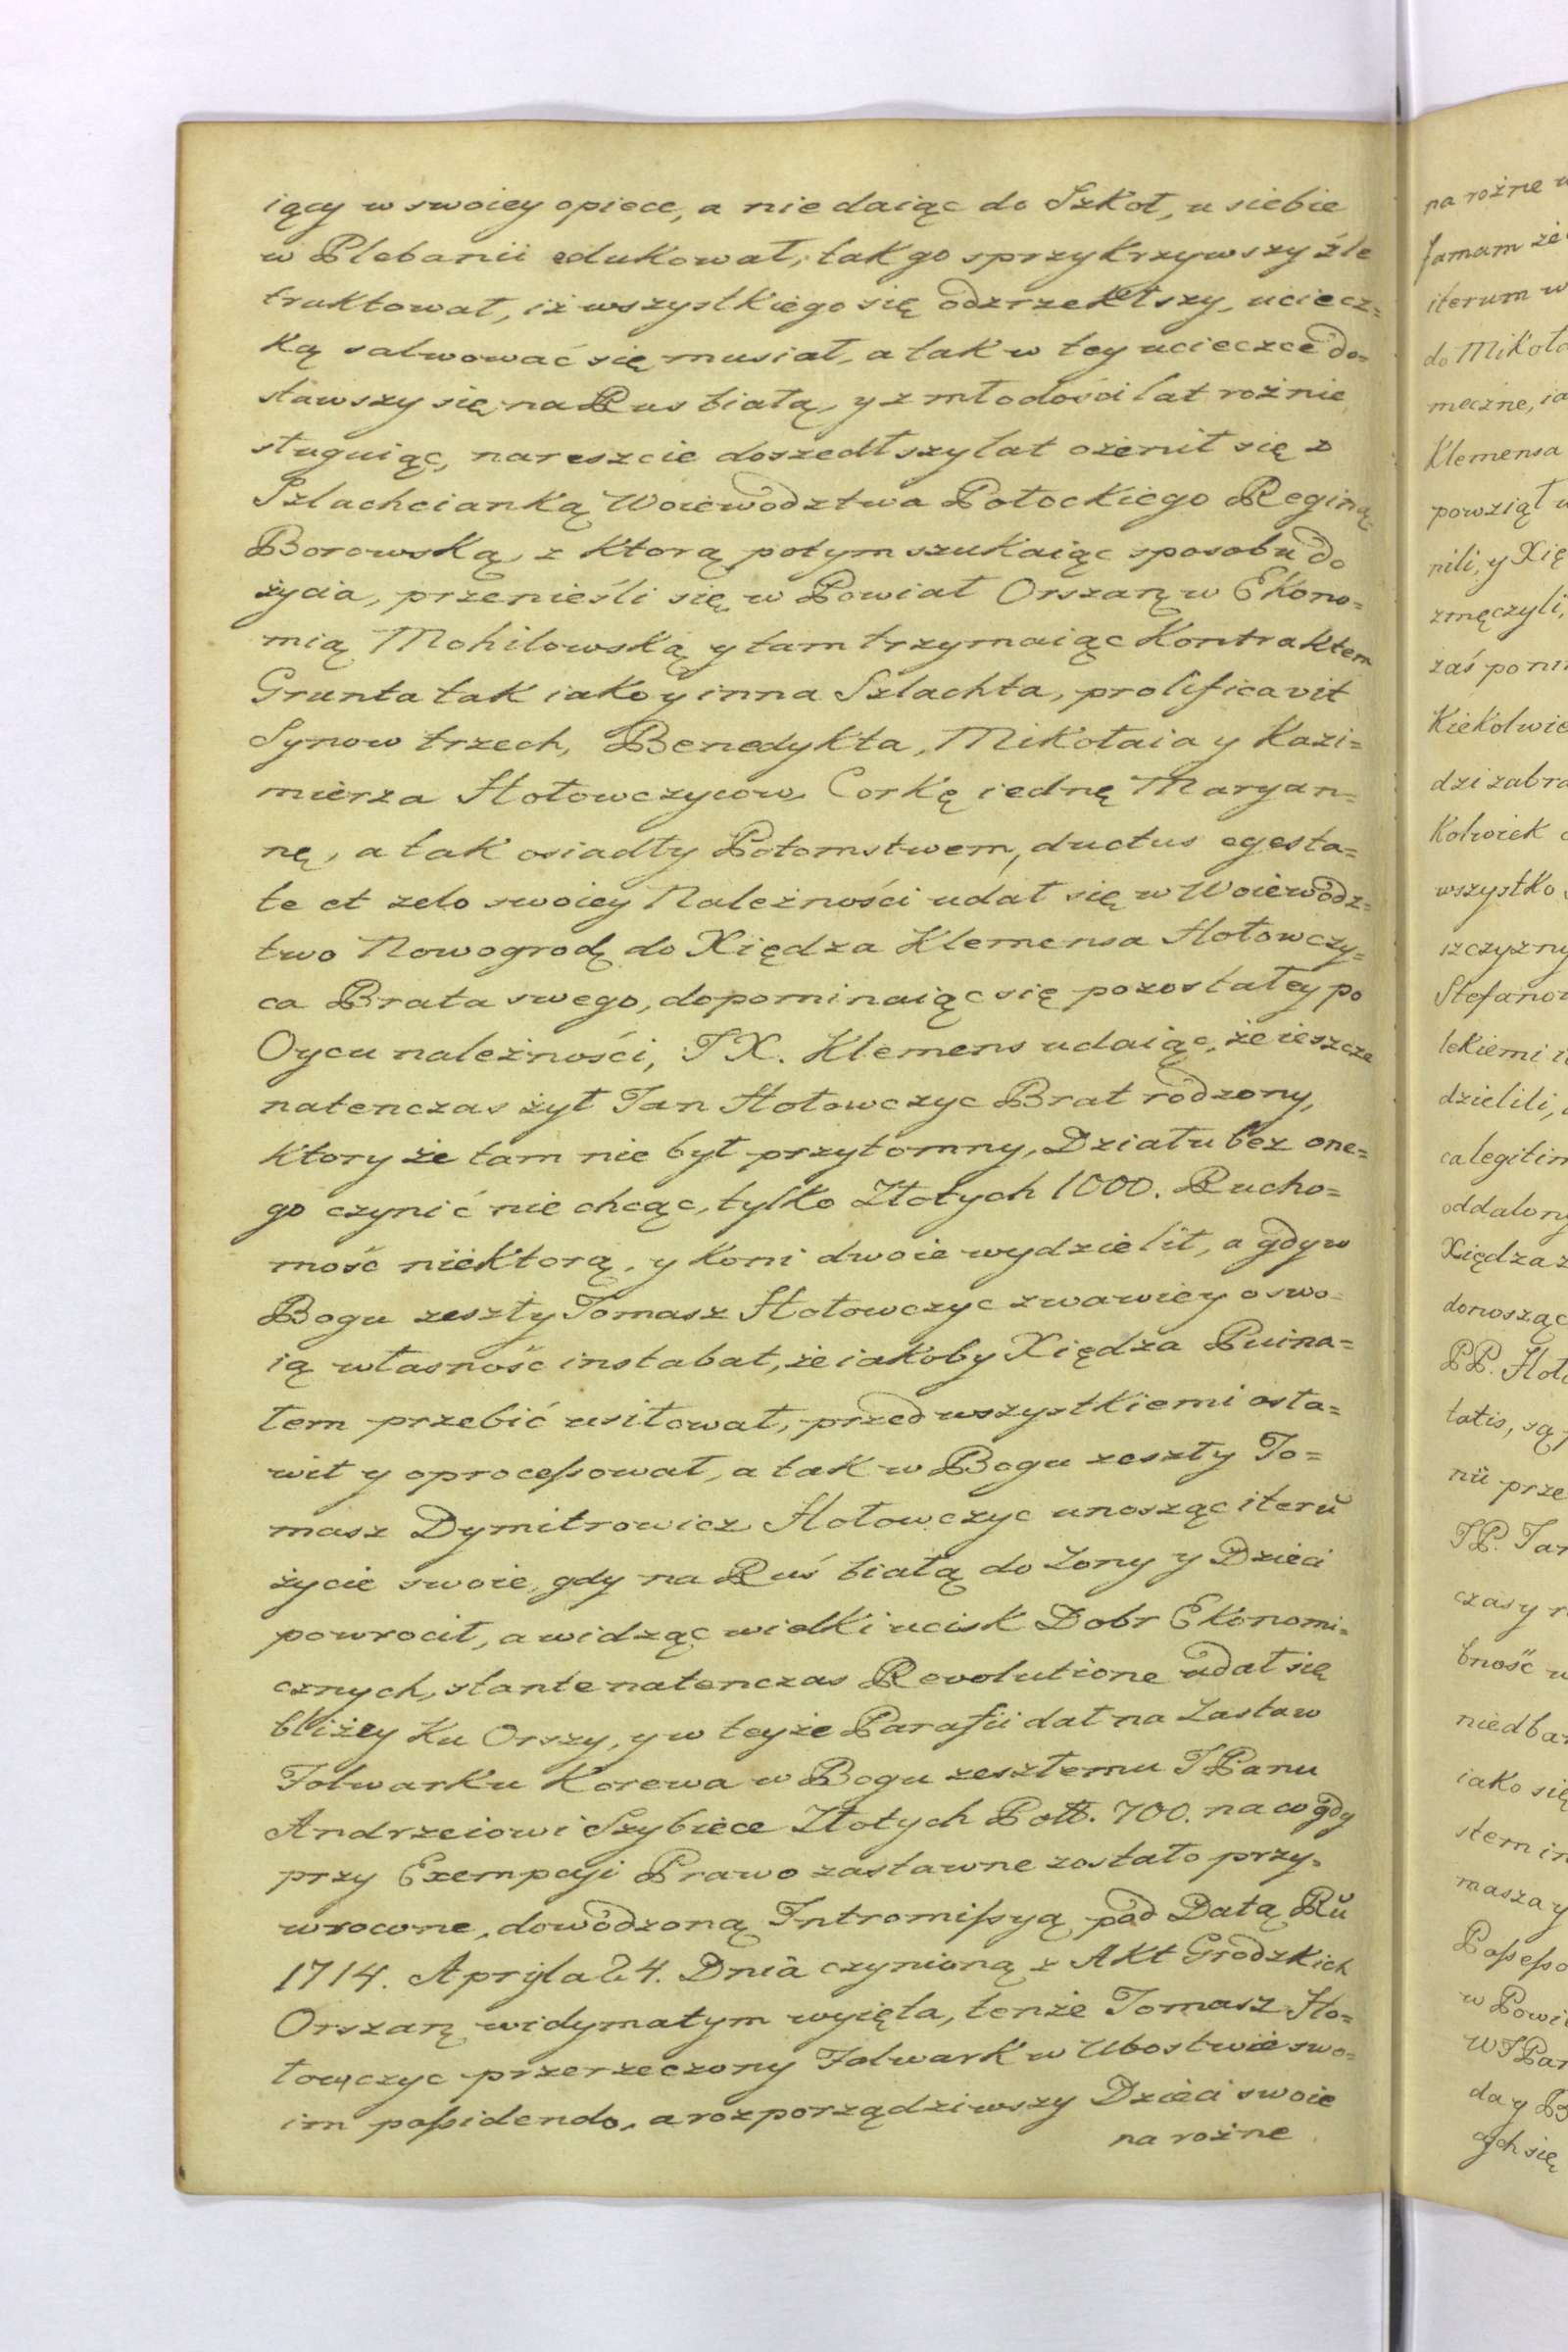 iący w swoiey opiece, a nie daiąc do Szkoł, u siebie
w Plebanii edukował, tak go sprzykrzywszy źle
traktował, iż wszystkiego się odzrzekłszy, uciecz=
ką salwować się musiał, a tak w tey ucieczce do=
stawszy się na Rus białą, y z młodości lat rożnie
sługuiąc, nareszcie doszedłszy lat ożenił się z
Szlachcianką Woiewodztwa Połockiego Reginą
Borowską, z ktorą potym szukaiąc sposobu do
życia, przenieśli się w Powiat Orszań w Ekono=
mią Mohilowską y tam trzymaiąc Kontraktem
Grunta tak iako y inna Szlachta, prolificavit
Synow trzech, Benedykta, Mikołaia y Kazi=
mierza Hołowczycow, Corkę iednę Maryan=
nę, a tak osiadły Potomstwem, ductus egesta=
te et zelo swoiey Należności udał się w Woiewodz=
two Nowogrod, do Xiędza Klemensa Hołowczy=
ca Brata swego, dopominaiąc się pozostałey po
Oycu należności, JX. Klemens udaiąc, że ieszcze
natenczas żył Jan Hołowczyc Brat rodzony,
ktory że tam nie był przytomny, Działu bez one=
go czynić nie chcąc, tylko Złotych 1000. Rucho=
mość niektorą, y koni dwoie wydzielił, a gdy w
Bogu zeszły Tomasz Hołowczyc zwawiey o swo=
ią własność instabat, że iakoby Xiędza Puina=
łem przebić usiłował, przed wszystkiemi osła=
wił y oprocessował, a tak w Bogu zeszły To=
masz Dymitrowicz Hołowczyc unosząc iterū
życie swoie, gdy na Ruś białą do Zony y Dzieci
powrocił, a widząc wielki ucisk Dobr Ekonomi=
cznych, stante natenczas Revolutione udał się
bliżey Ku Orszy, y w teyże Parafii dał na Zastaw
Folwarku Korewa w Bogu zeszłemu JPanu
Andrzeiowi Szybiece Złotych Poll. 700. na co gdy
przy Exempcyi Prawo zastawne zostało przy=
wrocone, dowodzoną Intromissyą pod Datą Rŭ
1714. Apryla 24. Dnia czynioną z Akt Grodzkich
Orszań widymatym wyięta, tenże Tomasz Ho=
łowczyc przerzeczony Folwark w Ubostwie swo=
im possidendo, a rozporządziwszy Dzieci swoie
na rożne
na rożne
famam że
iterum w
do Mikoła
meczne, ia
Klemensa
powziął
nili, y Xię
zmęczyli,
zaś poni
Kiekolwie
dzi zabra
Kolwiek
wszystko
szczyzny
Stefanow
lekiemi
dzielili,
ca legitim
oddalony
Xiędza z
donosząc
PP. Hoło
tatis, są
nii prze
JP. Jan
czasy
bność w
niedba
iako się
stem in
masza y
Possesso
w Powi
WJPan
da y
ych się